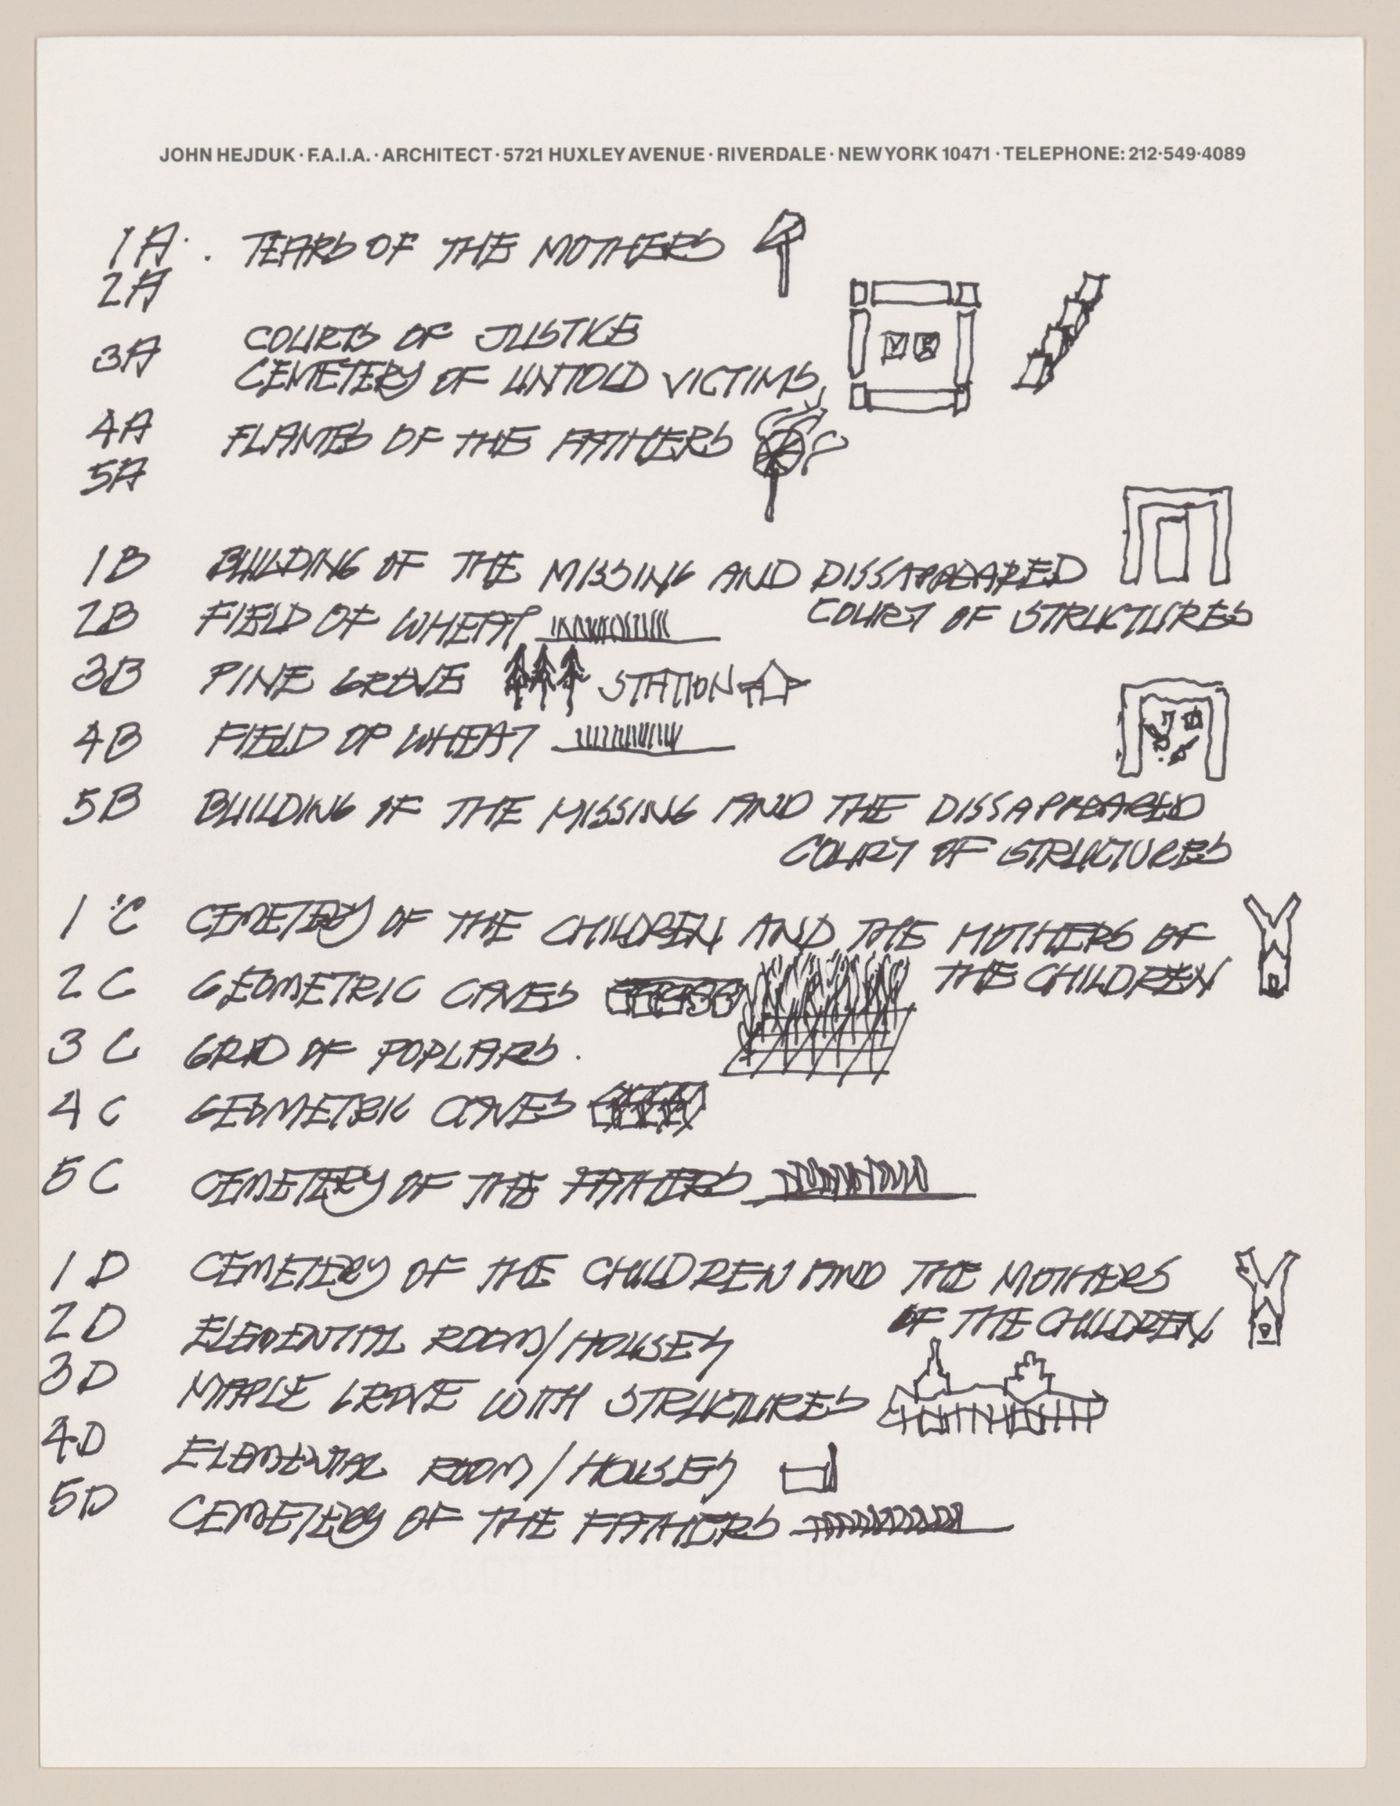 JOHN HEJDUK · F.A.I.A. · ARCHITECT · 5721 HUXLEY AVENUE · RIVERDALE · NEW YORK 10471 · TELEPHONE: 212·549·4089
1A. . TEARS OF THE MOTHERS
2A
3A COURTS OF JUSTICE
CEMETERY OF UNTOLD VICTIMS
4A FLAMES OF THE FATHERS
5A
1B BUILDING OF THE MISSING AND DISSAPPEARED
COURT OF STRUCTURES
2B FIELD OF WHEAT
3B PINE GROVE STATION
4B FIELD OF WHEAT
5B BUILDING OF THE MISSING AND THE DISSAPPEARED
COURT OF STRUCTURES
1 C CEMETERY OF THE CHILDREN AND THE MOTHERS OF
THE CHILDREN
2 C GEOMETRIC CAVES
3 C GRID OF POPLARS.
4 C GEOMETRIC CAVES
5 C CEMETERY OF THE FATHERS
1 D CEMETERY OF THE CHILDREN AND THE MOTHERS
OF THE CHILDREN
2 D ELEMENTAL ROOM/HOUSES
3D MAPLE GROVE WITH STRUCTURES
4D ELEMENTAL ROOM/HOUSES
5D CEMETERY OF THE FATHERS